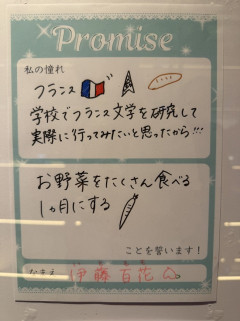 Promise
私の憧れ
フランス
学校でフランス文学を研究して
実際に行ってみたいと思ったから!!!
お野菜をたくさん食べる
1ヵ月にする
ことを誓います!
なまえ 伊藤百花